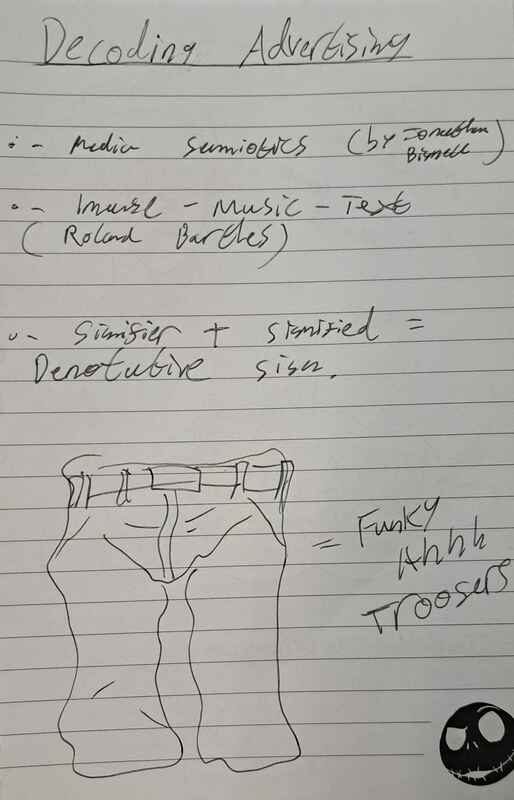 Decoding Advertising
- Media Semiotics (by Jonathan
Bismell)
- Image - Music - Text
(Roland Barthes)
- Signifier + signified =
Denotative sign.
= Funky
Ahhh
Troosers